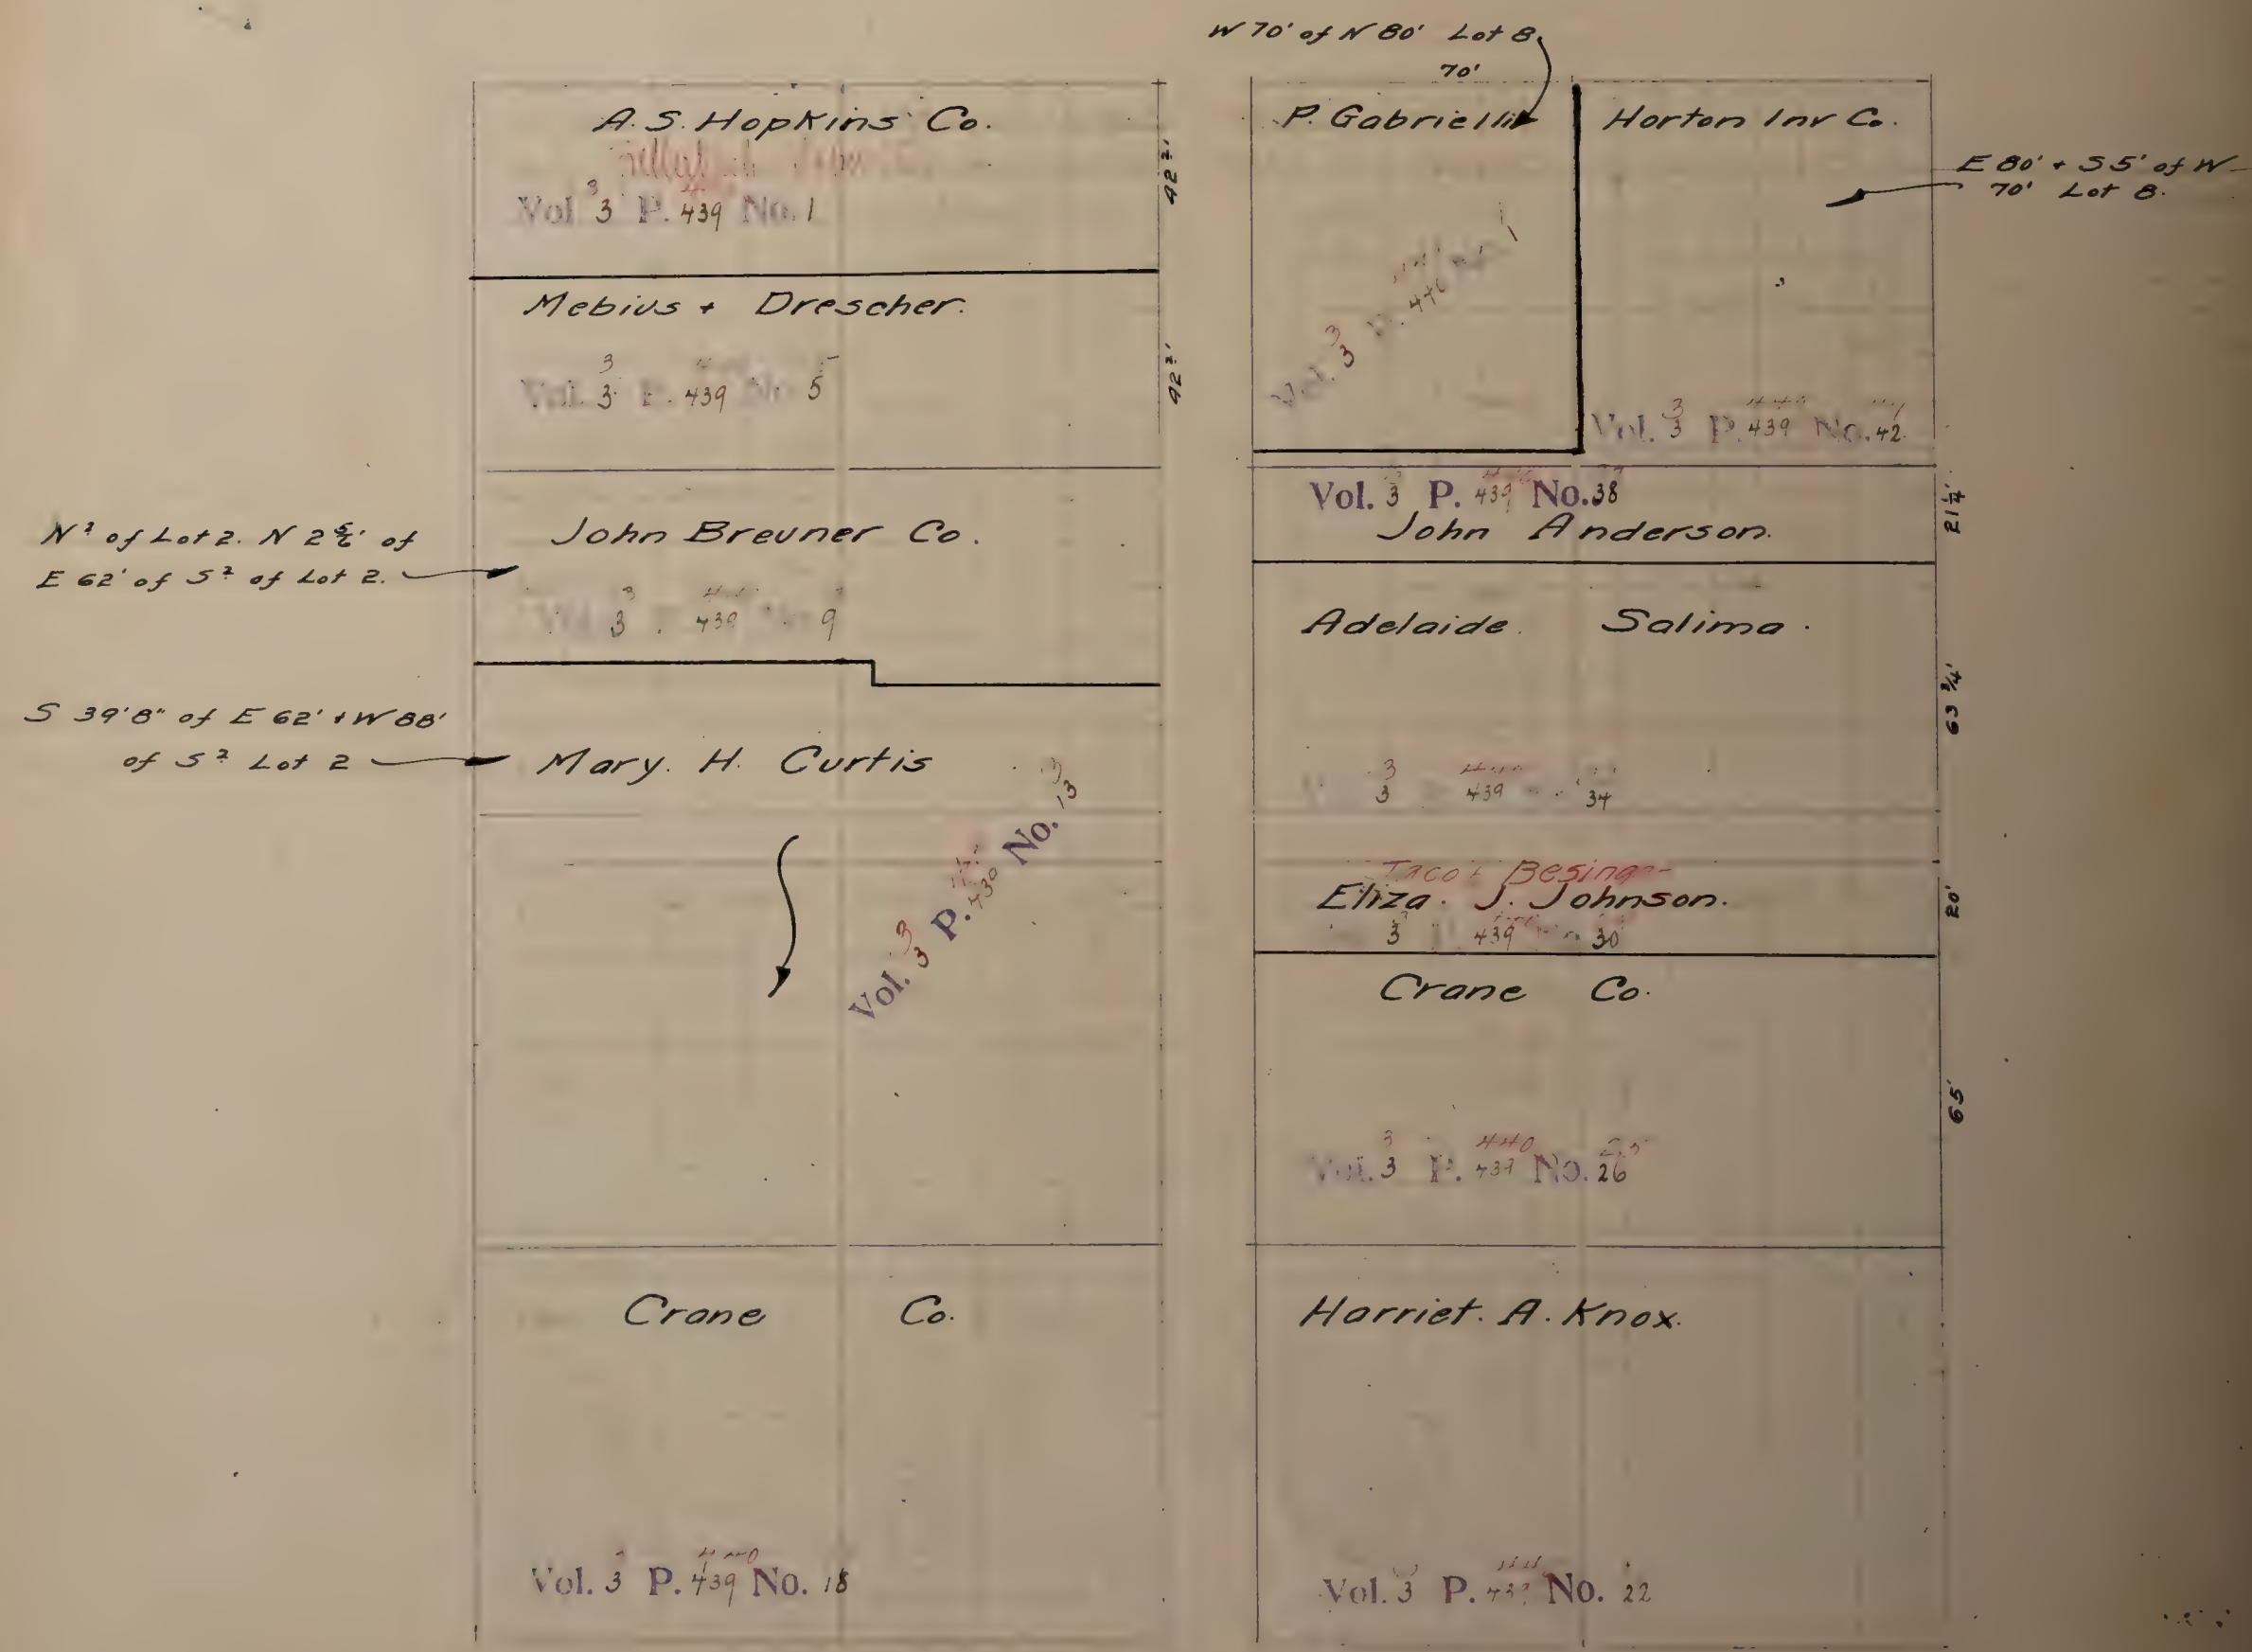 A. S. Hopkins Co.
Vol. 3 P. 439 No. 1
42 ½'
Mebius + Drescher.
Vol. 3 P. 439 No. 5
42 ½'
N ½ of Lot 2. N 2 of
E 62' of S ½ of Lot 2.
John Breuner Co.
Vol. 3 439 9
S 39'8" of E 62' + W 88'
of S ½ Lot 2
Mary. H. Curtis
Vol. 3 P. 439 No. 13
Crane Co.
Vol. 3 P. 439 No. 18
W 70' of N 80' Lot 8.
70'
P. Gabrielli
Vol. 3 P. 440 1
Horton Inv Co.
E 80' + S 5' of W
70' Lot 8.
Vol. 3 P. 439 No. 42
Vol. 3 P. 439 No. 38
John Anderson.
21 ¼'
Adelaide Salima.
63 ¾'
3 439 34
Besing
Eliza. J. Johnson.
3 439 30
20'
Crane Co.
65'
3 440
Vol. 3 P. 439 No. 26
Harriet. A. Knox.
Vol. 3 P. 439 No. 22